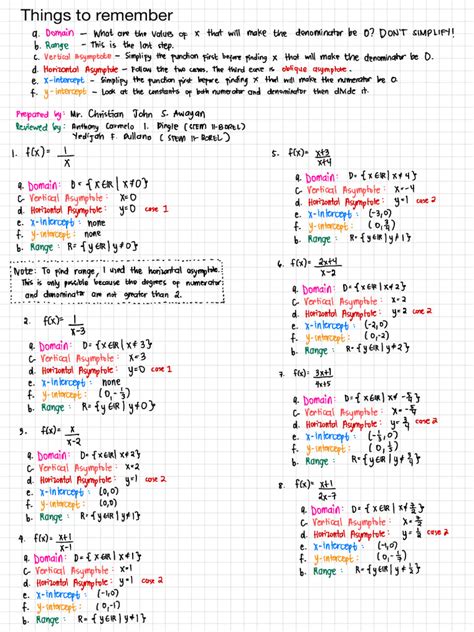 Things to remember
a. Domain - What are the values of x that will make the denominator be 0? DON'T SIMPLIFY!
b. Range - This is the last step.
c. Vertical Asymptote - Simplify the function first before finding x that will make the denominator be 0.
d. Horizontal Asymptote - Follow the two cases. The third case is oblique asymptote.
e. x-intercept - Simplify the function first before finding x that will make the numerator be 0.
f. y-intercept - Look at the constants of both numerator and denominator then divide it.
Prepared by: Mr. Christian John S. Awagan
Reviewed by: Anthony Carmelo I. Dingle (STEM 11-BOREL)
Yedijah F. Dullano (STEM 11-BOREL)
1. f(x) = 1/x
a. Domain: D = {x∈ℝ | x≠0}
c. Vertical Asymptote: x=0
d. Horizontal Asymptote: y=0 case 1
e. x-intercept: none
f. y-intercept: none
b. Range: R = {y∈ℝ | y≠0}
Note: To find range, I used the horizontal asymptote.
This is only possible because the degrees of numerator
and denominator are not greater than 2.
2. f(x) = 1/x-3
a. Domain: D = {x∈ℝ | x≠3}
c. Vertical Asymptote: x=3
d. Horizontal Asymptote: y=0 case 1
e. x-intercept: none
f. y-intercept: (0,-1/3)
b. Range: R = {y∈ℝ | y≠0}
3. f(x) = x/x-2
a. Domain: D = {x∈ℝ | x≠2}
c. Vertical Asymptote: x=2
d. Horizontal Asymptote: y=1 case 2
e. x-intercept: (0,0)
f. y-intercept: (0,0)
b. Range: R = {y∈ℝ | y≠1}
4. f(x) = x+1/x-1
a. Domain: D = {x∈ℝ | x≠1}
c. Vertical Asymptote: x=1
d. Horizontal Asymptote: y=1 case 2
e. x-intercept: (-1,0)
f. y-intercept: (0,-1)
b. Range: R = {y∈ℝ | y≠1}
5. f(x) = x+3/x+4
a. Domain: D = {x∈ℝ | x≠4}
c. Vertical Asymptote: x=-4
d. Horizontal Asymptote: y=1 case 2
e. x-intercept: (-3,0)
f. y-intercept: (0,3/4)
b. Range: R = {y∈ℝ | y≠1}
6. f(x) = 2x+4/x-2
a. Domain: D = {x∈ℝ | x≠2}
c. Vertical Asymptote: x=2
d. Horizontal Asymptote: y=2 case 2
e. x-intercept: (-2,0)
f. y-intercept: (0,-2)
b. Range: R = {y∈ℝ | y≠2}
7. f(x) = 3x+1/4x+5
a. Domain: D = {x∈ℝ | x≠-5/4}
c. Vertical Asymptote: x=-5/4
d. Horizontal Asymptote: y=3/4 case 2
e. x-intercept: (-1/3,0)
f. y-intercept: (0,1/5)
b. Range: R = {y∈ℝ | y≠3/4}
8. f(x) = x+1/2x-7
a. Domain: D = {x∈ℝ | x≠7/2}
c. Vertical Asymptote: x=7/2
d. Horizontal Asymptote: y=1/2 case 2
e. x-intercept: (-1,0)
f. y-intercept: (0,-1/7)
b. Range: R = {y∈ℝ | y≠1/2}